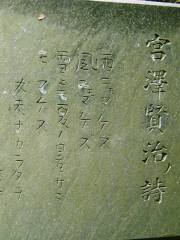 宮澤賢治ノ詩
雨ニモマケズ
風ニモマケズ
雪ニモ夏ノ暑サニ
モマケヌ
丈夫ナカラダヲ